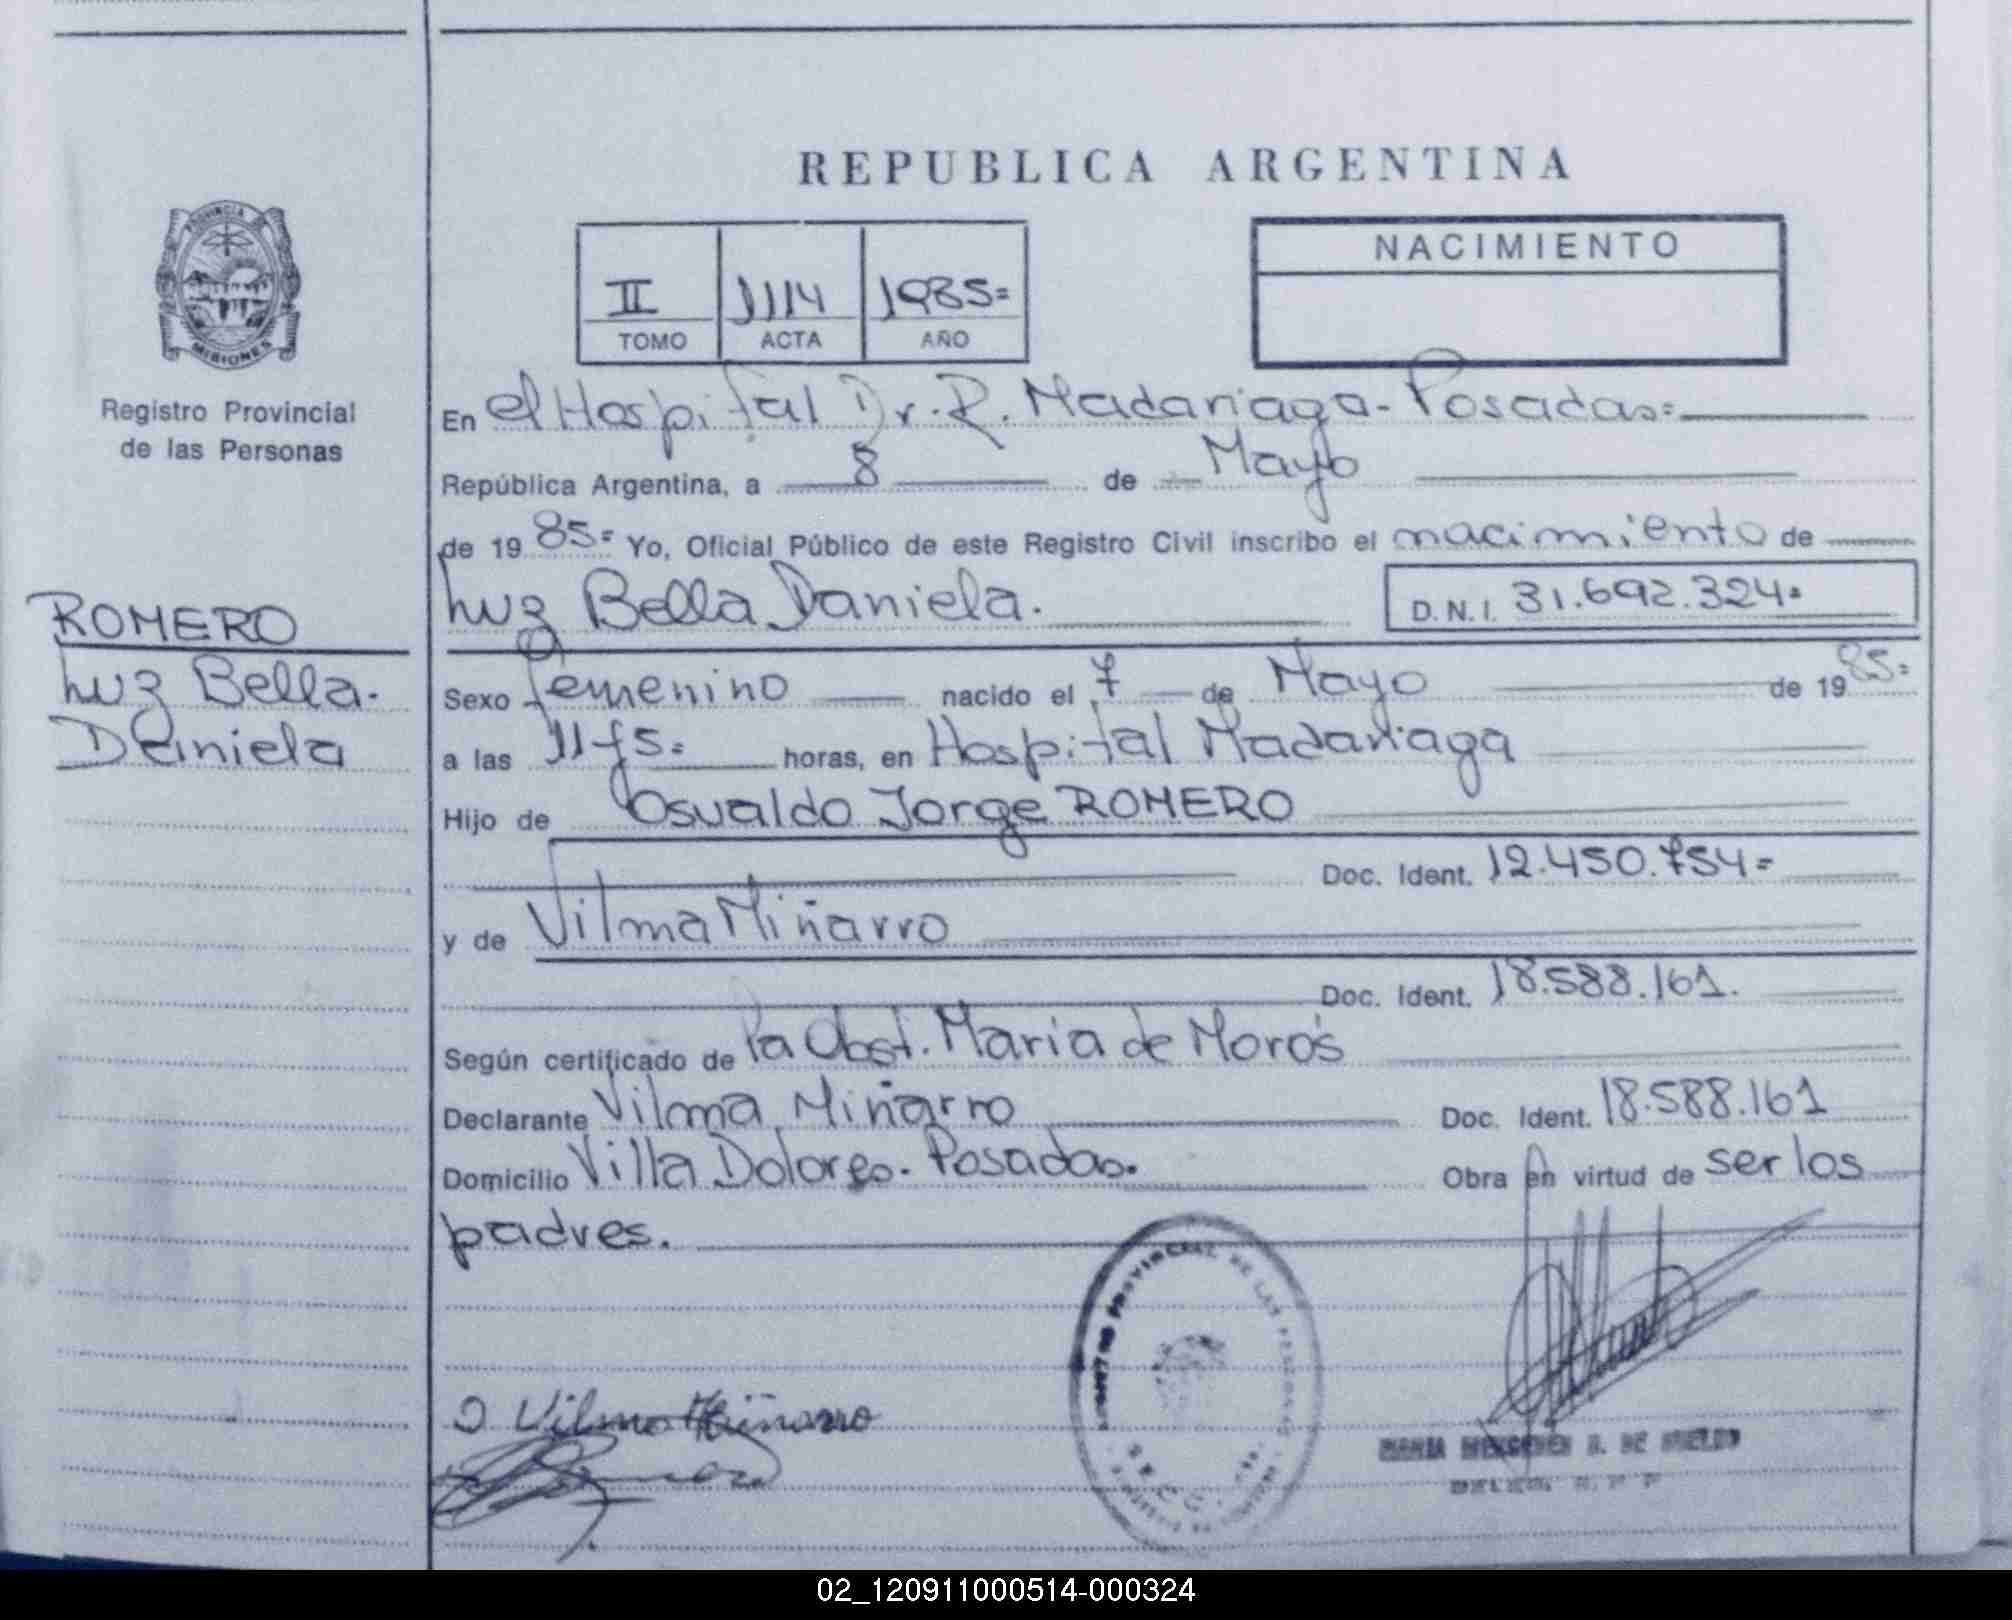 REPUBLICA ARGENTINA
PROVINCIA
MISIONES
Registro Provincial
de las Personas
II 1114 1985=
TOMO ACTA AÑO
NACIMIENTO
En el Hospital Dr. R. Madariaga - Posadas=
República Argentina, a 8 de Mayo
de 19 85= Yo, Oficial Público de este Registro Civil inscribo el nacimiento de
Luz Bella Daniela. D.N.I. 31.692.324=
ROMERO
Luz Bella.
Daniela
Sexo femenino nacido el 7 de Mayo de 19 85=
a las horas, en Hospital Madariaga
Hijo de Osvaldo Jorge ROMERO
Doc. Ident. 12.450.754=
y de Vilma Miñarro
Doc. Ident. 18.588.161.
Según certificado de la Obst. Maria de Morós
Declarante Vilma Miñarro Doc. Ident. 18.588.161
Domicilio Villa Dolores. Posadas. Obra en virtud de ser los
padres.
PROVINCIAL DE LAS PERSONAS
Vilma Miñarro
02_120911000514-000324